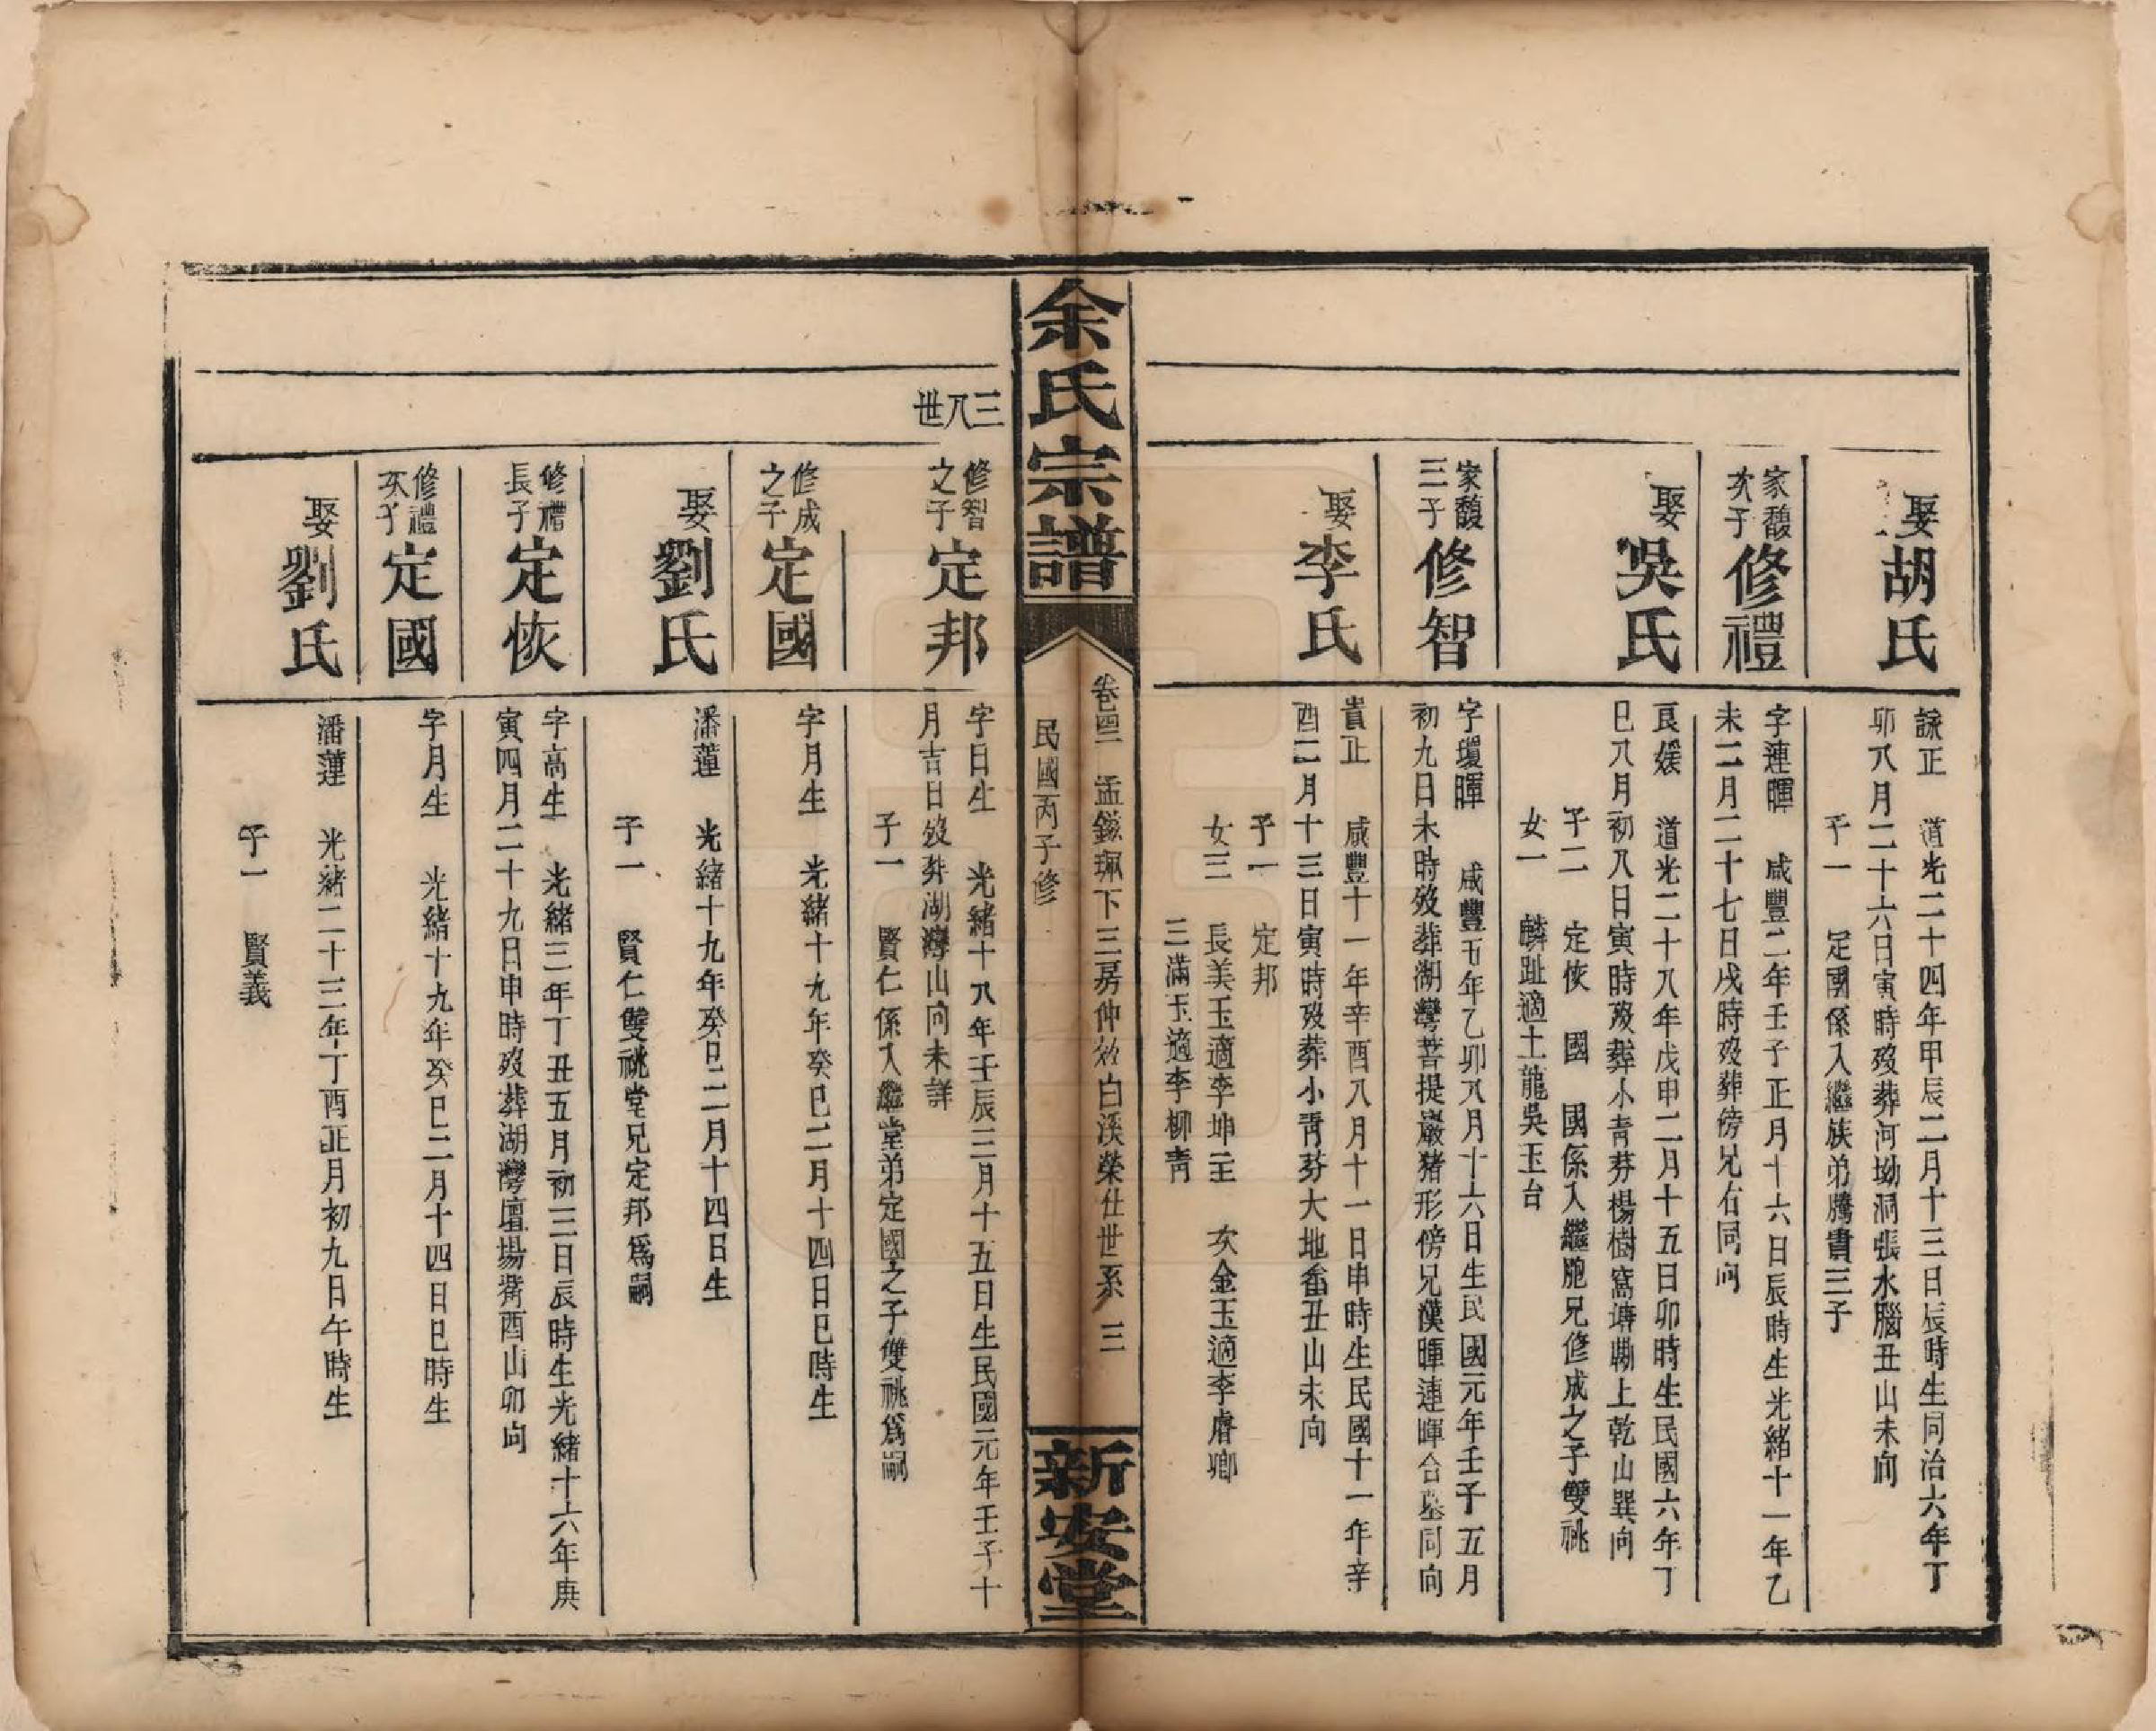 娶胡氏
詠正　道光二十四年甲辰二月十三日辰時生同治六年丁
卯八月二十六日寅時歿葬河坳洞張水腦丑山未向
子一　定國係入繼族弟騰貴三子
家馥次子修禮
字連暉　咸豐二年壬子正月十六日辰時生光緒十一年乙
未二月二十七日戌時歿葬傍兄右同向
娶吳氏
良媛　道光二十八年戊申二月十五日卯時生民國六年丁
巳八月初八日寅時歿葬小青芬楊樹窩塘勘上乾山巽向
子二　定恢　國　國係入繼胞兄修成之子雙祧
女一　麟趾適土龍吳玉台
家馥三子修智
字環暉　咸豐五年乙卯八月十六日生民國元年壬子五月
初九日未時歿葬湖灣菩提巖豬形傍兄漢暉連暉合墓同向
娶李氏
貴正　咸豐十一年辛酉八月十一日申時生民國十一年辛
酉二月十三日寅時歿葬小青芬大地畬丑山未向
子一　定邦
女三　長美玉適李坤玉　次金玉適李膚卿
三滿玉適李柳青
余氏宗譜
卷四　孟鎰珮下三房仲効白溪榮仕世系　三
民國丙子修
新安堂
三八世
修智之子定邦
字日生　光緒十八年壬辰三月十五日生民國元年壬子十
月吉日歿葬湖灣山向未詳
子一　賢仁係入繼堂弟定國之子雙祧爲嗣
修成之子定國
字月生　光緒十九年癸巳二月十四日巳時生
娶劉氏
潘蓮　光緒十九年癸巳二月十四日生
子一　賢仁雙祧堂兄定邦爲嗣
修禮長子定恢
字高生　光緒三年丁丑五月初三日辰時生光緒十六年庚
寅四月二十九日申時歿葬湖灣壇場嘴酉山卯向
修禮次子定國
字月生　光緒十九年癸巳二月十四日巳時生
娶劉氏
潘蓮　光緒二十三年丁酉正月初九日午時生
子一　賢義